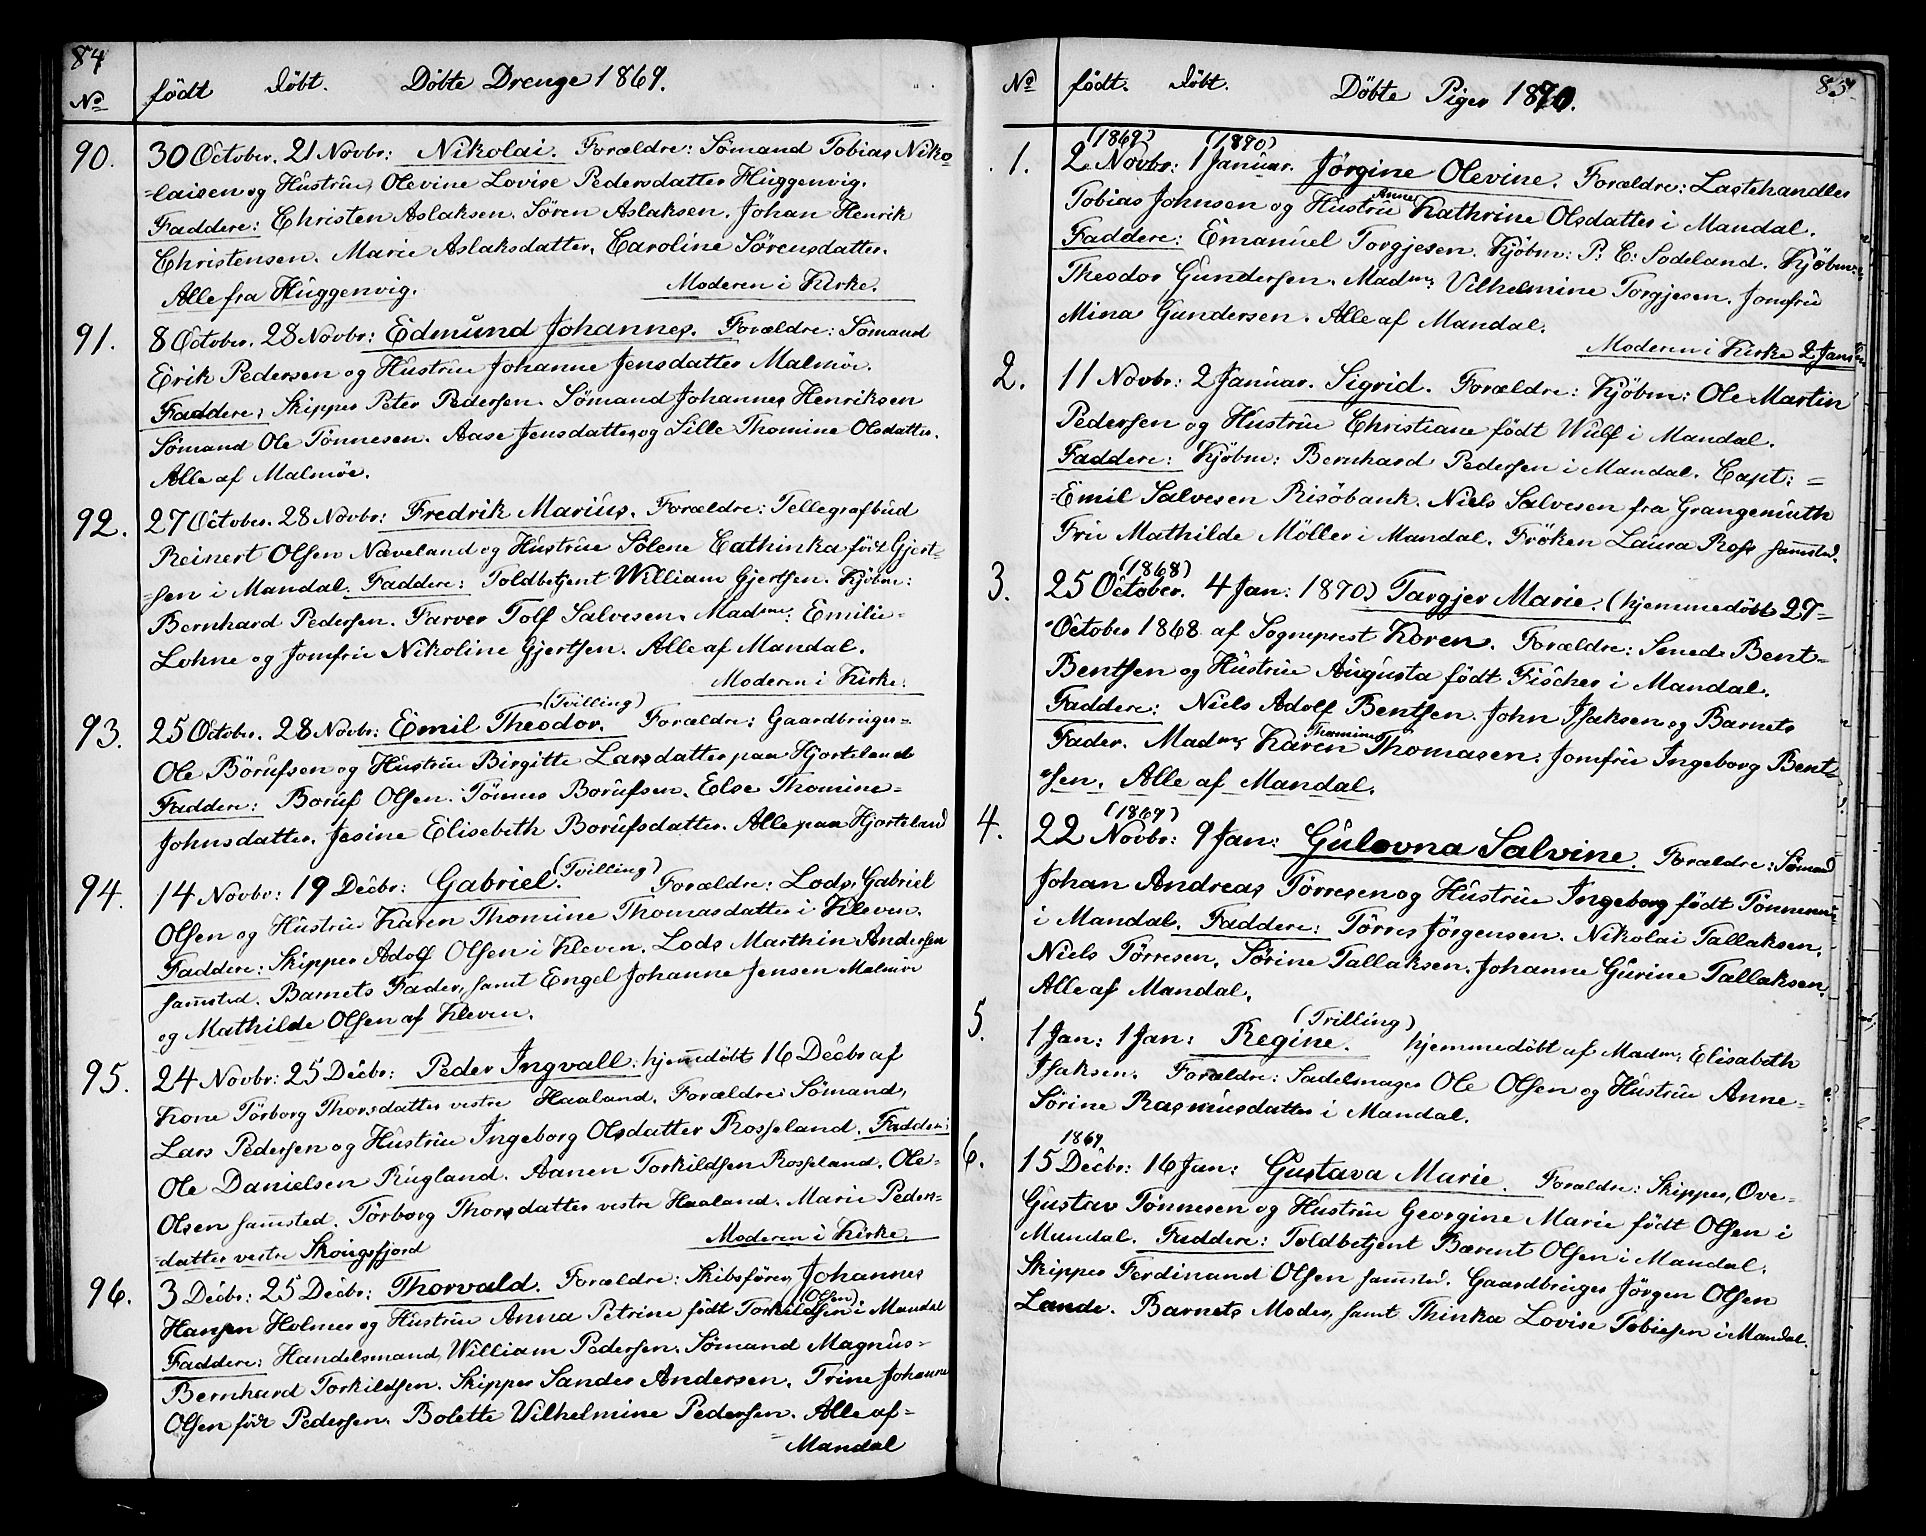 84
No født døbt. Døbte Drenge 1869.
90. 30 October. 21 Novbr: Nikolai. Forældre: Sømand Tobias Niko=
=laisen og Hustrue Olevine Lovise Pedersdatter Huggenvig.
Faddere: Christen Aslaksen. Søren Aslaksen. Johan Henrik
Christensen. Marie Aslaksdatter. Caroline Sørensdatter.
Alle fra Huggenvig. Moderen i Kirke.
91. 8 October. 28 Novbr: Edmund Johannes. Forældre: Sømand
Erik Pedersen og Hustrue Johanne Jensdatter Malmøe.
Faddere: Skipper Peter Pedersen. Sømand Johannes Henriksen
Sømand Ole Tønnesen. Aase Jensdatter og Sille Thomine Olsdatter.
Alle af Malmøe.
92. 27 October. 28 Novbr: Fredrik Marius. Forældre: Tellegrafbud
Reinert Olsen Næveland og Hustrue Solene Cathinka født Gjert=
=sen i Mandal. Faddere: Toldbetjent William Gjertsen. Kjøbm:
Bernhard Pedersen. Farver Tolf Salvesen. Madme: Emilie=
Lohne og Jomfrue Nikoline Gjertsen. Alle af Mandal.
Moderen i Kirke.
(Tvilling)
93. 25 October. 28 Novbr: Emil Theodor. Forældre: Gaardbruger=
Ole Børufsen og Hustrue Birgitte Larsdatter paa Hjorteland
Faddere: Boruf Olsen. Tønnes Borufsen. Else Thomine=
Johnsdatter. Jesine Elisebeth Borufsdatter. Alle paa Hjorteland
94. 14 Novbr: 19 Decbr: Gabriel. (Tvilling) Forældre: Lods Gabriel
Olsen og Hustrue Karen Thomine Thomasdatter i Kleven.
Faddere: Skipper Adolf Olsen i Kleven. Lods Marthin Andersen
sammested. Barnets Fader, samt Engel Johanne Jensen Malmøe
og Mathilde Olsen af Kleven.
95. 24 Novbr: 25 Decbr: Peder Ingvall: hjemmedøbt 16 Decbr af
Kone Tørborg Thorsdatter vestre Haaland. Forældre Sømand,
Lars Pedersen og Hustrue Ingeborg Olsdatter Rosseland. Faddere:
Ole Danielsen Rugland. Aanen Torkildsen Rosseland. Ole=
Olsen sammested. Torborg Thorsdatter vestre Haaland. Marie Peders=
=datter vestre Skougsfjord Moderen i Kirke.
96. 3 Decbr: 25 Decbr: Thorvald. Forældre: Skibsfører, Johannes
(Olsen)
Hansen Holmer og Hustrue Anna Petrine født Torkildsen i Mandal
Faddere: Handelsmand, William Pedersen. Sømand Magnus=
Bernhard Torkildsen. Skipper Sander Andersen. Trine Johanne
Olsen født Pedersen. Bolette Wilhelmine Pedersen. Alle af=
=Mandal
No født. døbt. Døbte Piger 1870. 85.
(1869) (1870)
1. 2 Novbr: 1 Januar. Jørgine Olevine. Forældre: Lastehandler
Anne
Tobias Johnsen og Hustrue Kathrine Olsdatter i Mandal.
Faddere: Emanuel Torgjesen. Kjøbm: P. C: Sodeland. Kjøbm:
Theodor Gundersen. Madme Vilhelmine Torgjesen. Jomfrue
Mina Gundersen. Alle af Mandal.
Moderen i Kirke 2 Januar
2. 11 Novbr: 2 Januar. Sigrid. Forældre: Kjøbm: Ole Martin
Pedersen og Hustrue Christiane født Wulf i Mandal.
Faddere: Kjøbm: Bernhard Pedersen i Mandal. Capt: =
=Emil Salvesen Risøbank. Niels Salvesen fra Grangemuth
Frue Mathilde Møller i Mandal. Frøken Laura Ross sammested.
(1868)
3. 25 October. 4 Jan: 1870) Targjer Marie. (hjemmedøbt 27=
=October 1868 af Sogneprest Koren. Forældre: Smed Bent=
Bentsen og Hustrue Augusta født Fischer i Mandal.
Faddere: Niels Adolf Bentsen. John Isaksen og Barnets
Thomine
Fader. Madme Karen Thomasen. Jomfrue Ingeborg Bent=
=sen. Alle af Mandal.
(1869)
4. 22 Novbr: 9 Jan: Gulovna Salvine. Forældre: Sømand
Johan Andreas Tørresen og Hustrue Ingeborg født Tønnesen
i Mandal. Faddere: Tørres Jørgensen. Nikolai Tallaksen.
Niels Tørresen. Sørine Tallaksen. Johanne Gurine Tallaksen.
Alle af Mandal.
(Trilling)
5. 1 Jan: 1 Jan: Regine. hjemmedøbt af Madme Elisabeth
Isaksen. Forældre: Sadelmager Ole Olsen og Hustrue Anne=
Sørine Rasmusdatter i Mandal.
1869
6. 15 Decbr: 16 Jan: Gustava Marie. Forældre: Skipper, Ove=
Gustav Tønnesen og Hustrue Georgine Marie født Olsen i
Mandal. Faddere: Toldbetjent Bærent Olsen i Mandal.
Skipper Ferdinand Olsen sammested. Gaardbruger Jørgen Olsen
Lande. Barnets Moder, samt Thinka Lovise Tobiesen i Mandal.